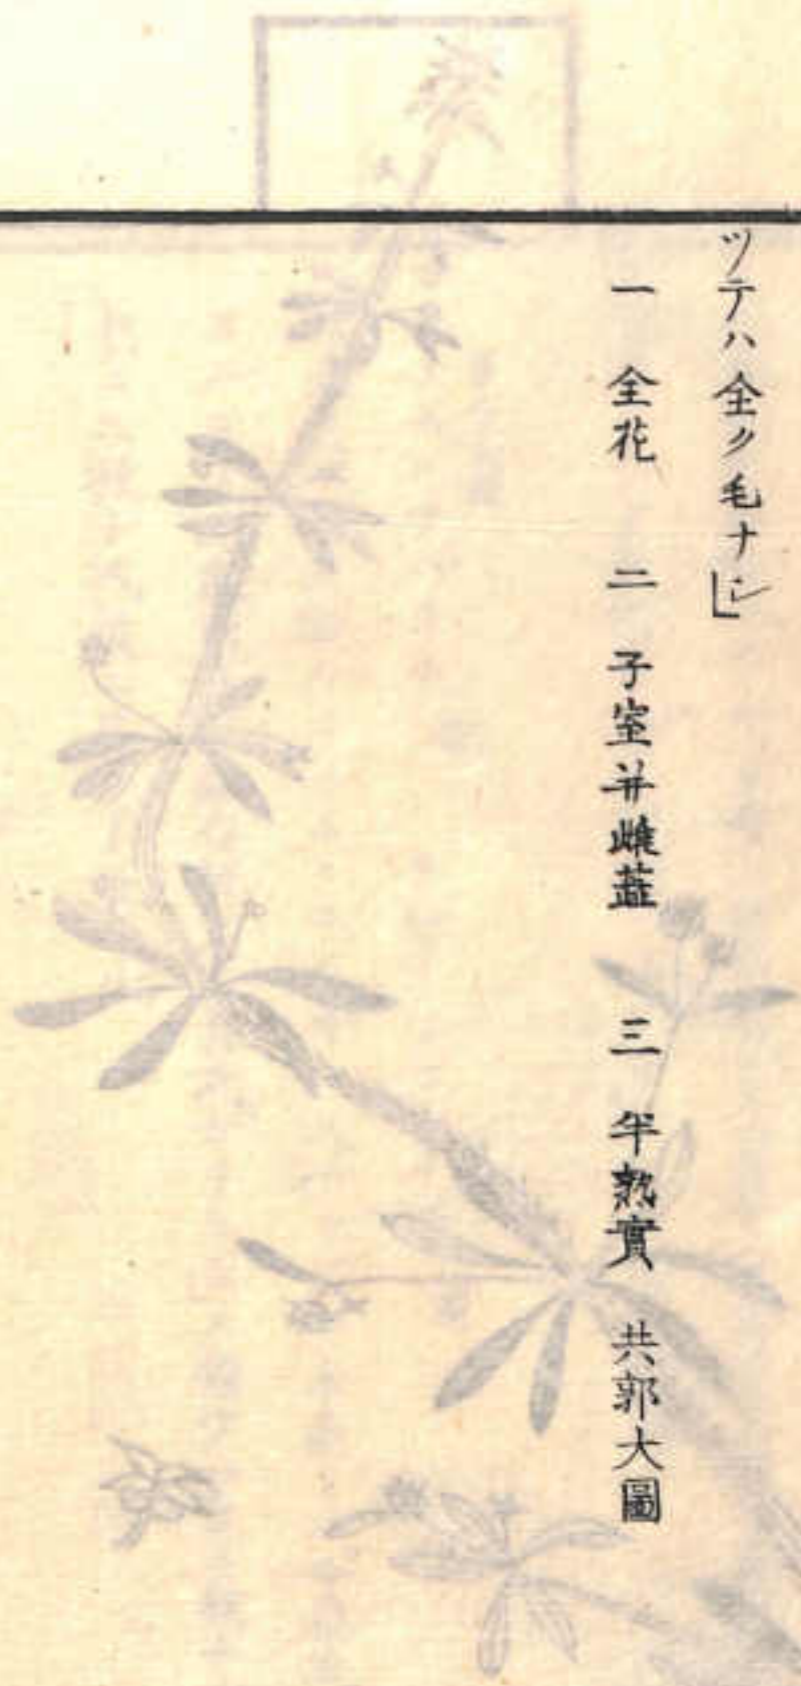 ツテハ全ク毛ナシ」
一 全花 二 子室并雌蕋 三 半熟實 共郭大圖